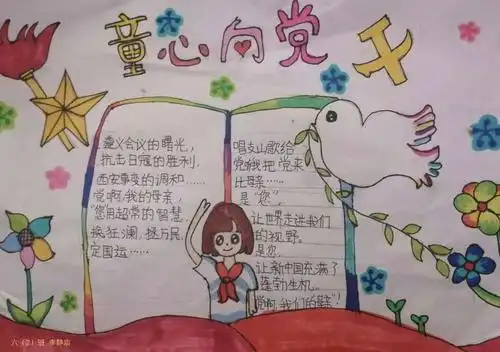 童心向党
遵义会议的曙光，
抗击日冠的胜利，
西安事变的调和……
党啊，我的母亲，
"您用超常的智慧，
挨狂澜，拯万民，
定国运……
唱支山歌给
党我把党来
比母亲……
是"您"，
让世界走进我们
的视野。
是您，
让新中国充满了
蓬勃生机。
党啊，我们的母亲"！
六（2）班